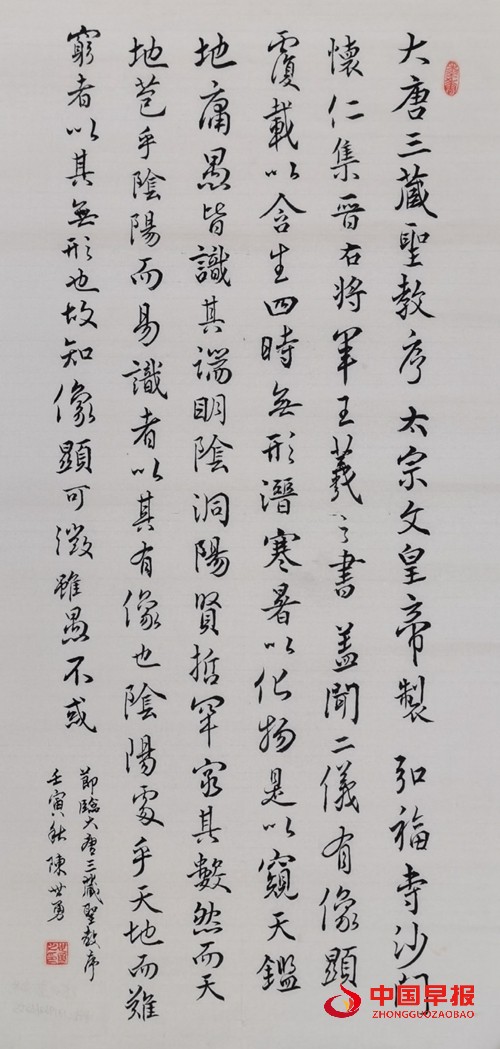 大唐三藏聖教序太宗文皇帝製 弘福寺沙門
懷仁集晉右將軍王羲之書 蓋聞二儀有像顯
覆載以含生四時無形潛寒暑以化物是以窺天鑑
地庸愚皆識其端明陰洞陽賢哲罕窮其數然而天
地苞乎陰陽而易識者以其有像也陰陽處乎天地而難
窮者以其無形也故知像顯可徵雖愚不或
節臨大唐三藏聖教序
壬寅秋陳世勇
中国早报
ZHONGGUOZAOBAO